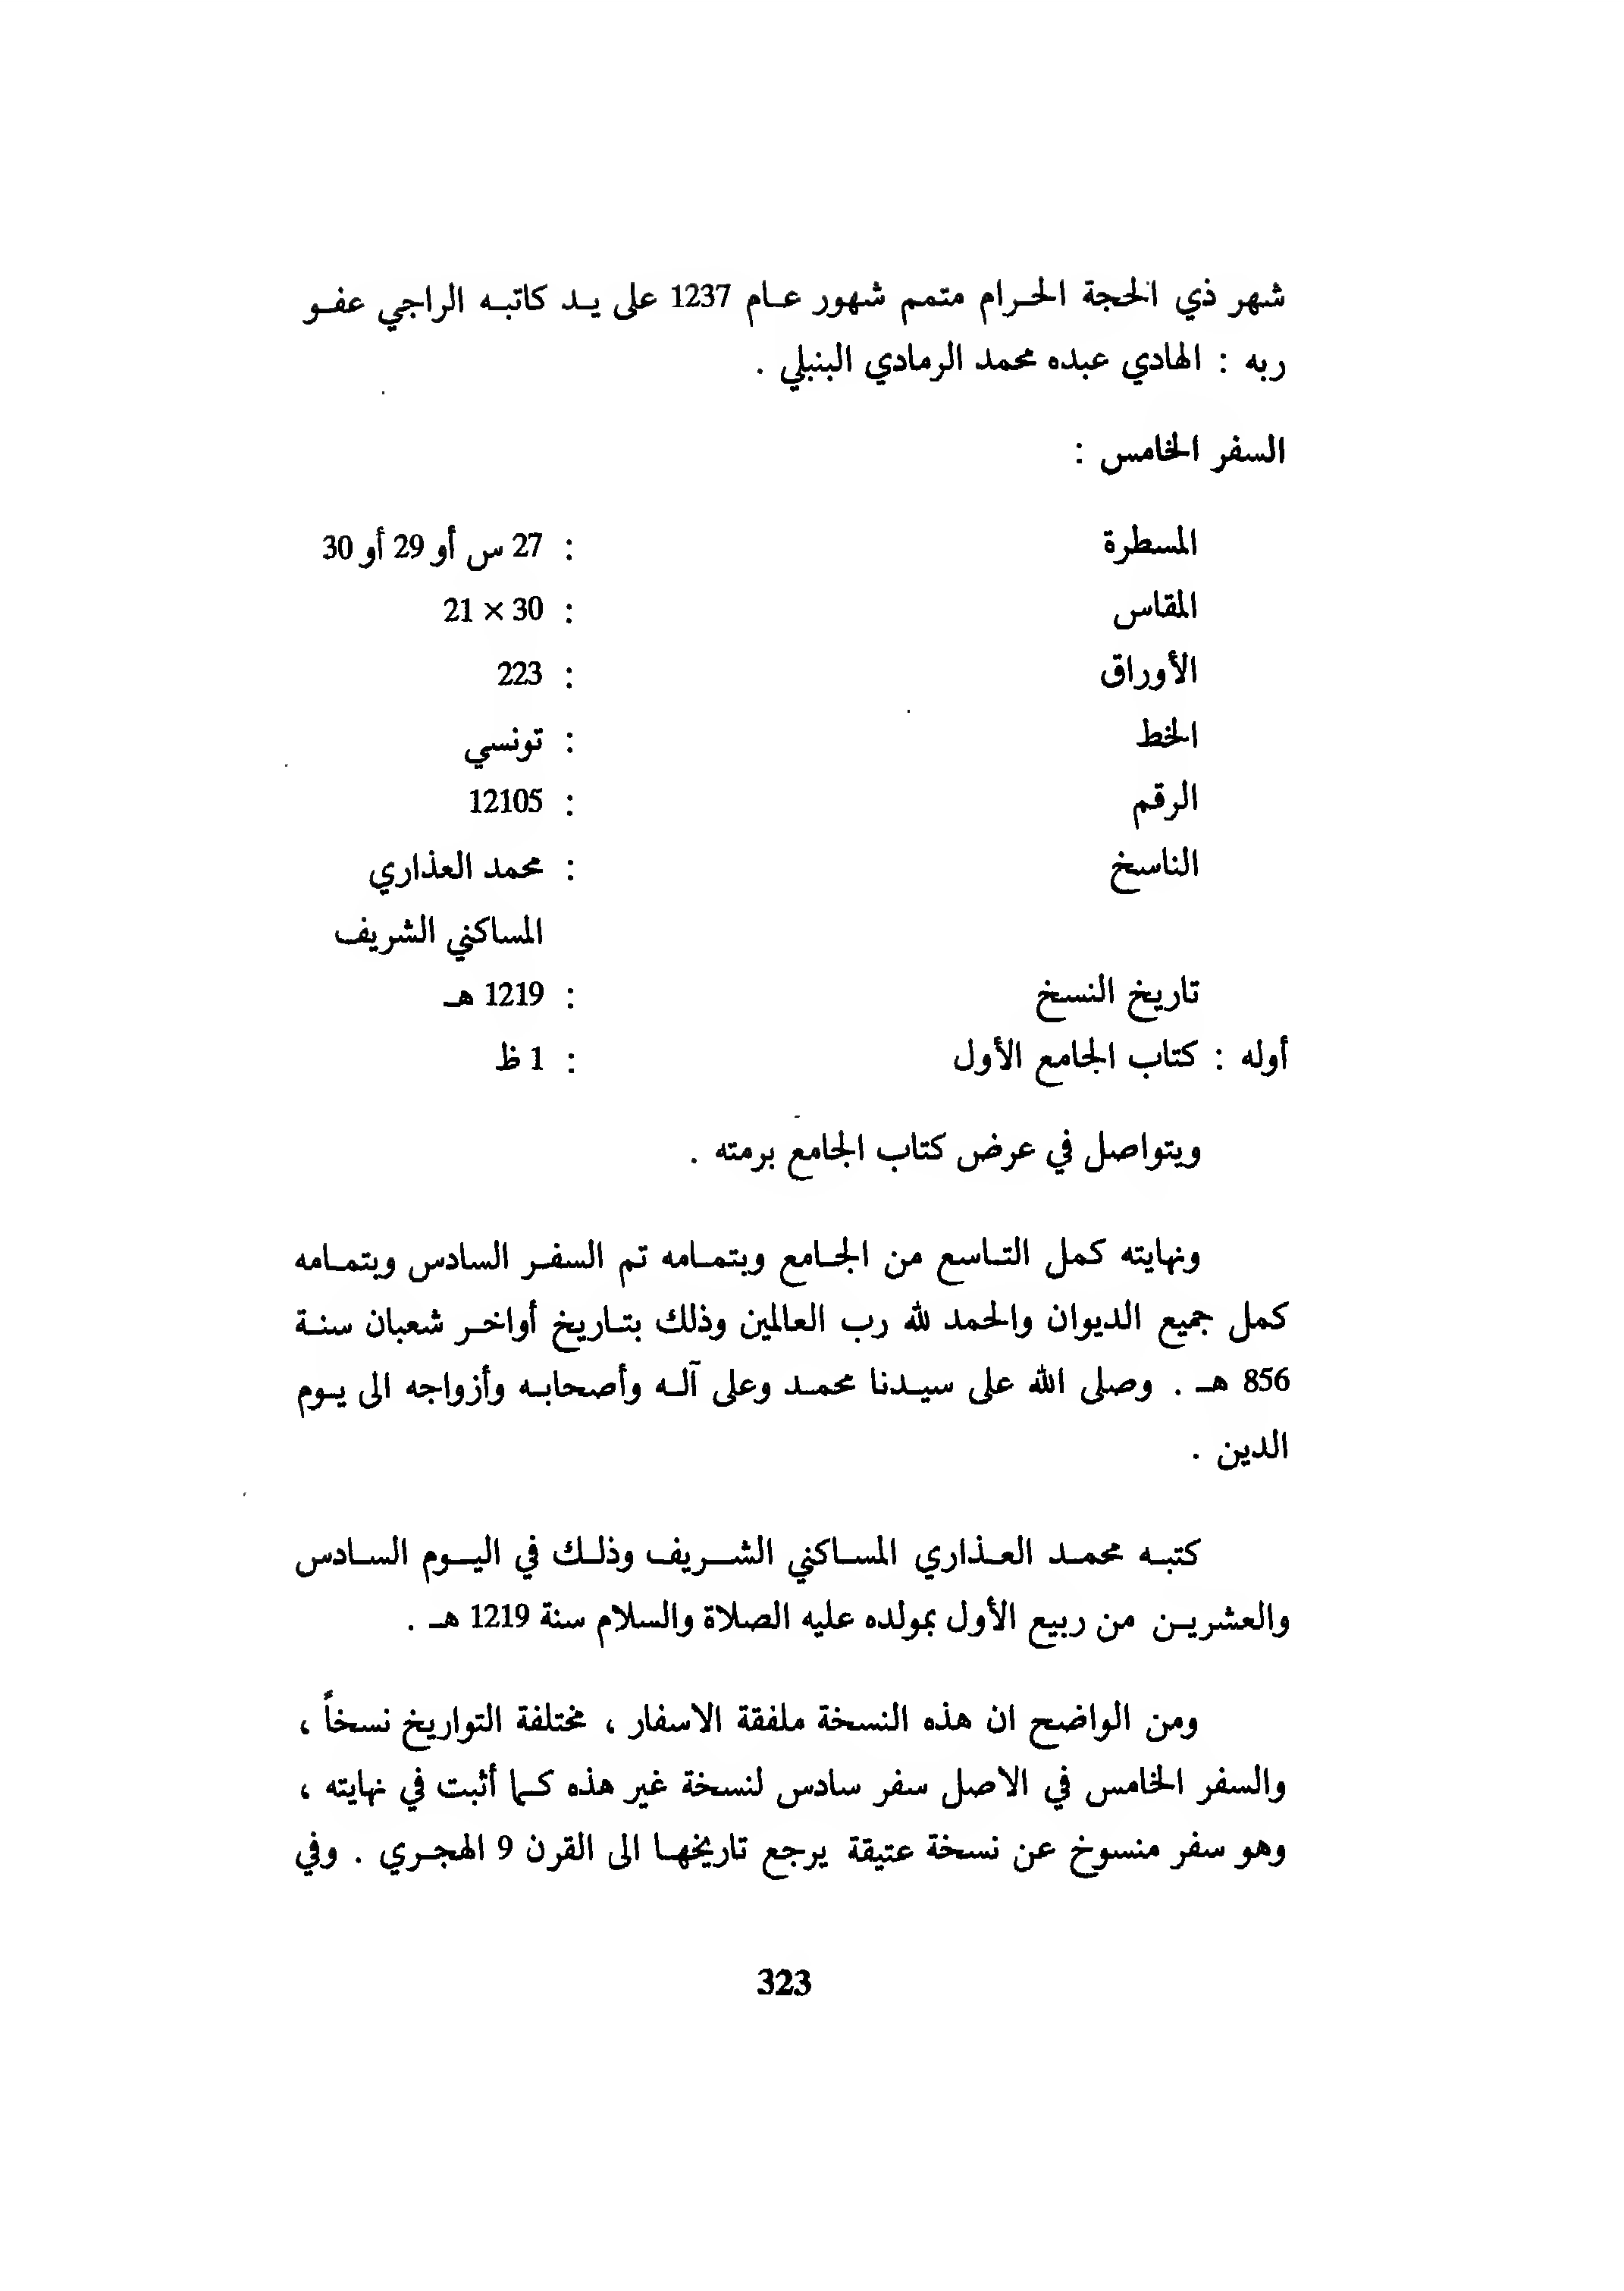 شهر ذي الحجة الحرام متمم شهور عام 1237 على يد كاتبه الراجي عفو
ربه : الهادي عبده محمد الرمادي البنبلي .
السفر الخامس :
المسطرة : 27 س أو 29 أو 30
المقاس : 30 × 21
الأوراق : 223
الخط : تونسي
الرقم : 12105
الناسخ : محمد العذاري
المساكني الشريف
تاريخ النسخ : 1219 هـ
أوله : كتاب الجامع الأول : 1 ظ
ويتواصل في عرض كتاب الجامع برمته .
ونهايته كمل التاسع من الجامع وبتمامه تم السفر السادس وبتمامه
كمل جميع الديوان والحمد لله رب العالمين وذلك بتاريخ أواخر شعبان سنة
856 هـ . وصلى الله على سيدنا محمد وعلى آله وأصحابه وأزواجه الى يوم
الدين .
كتبه محمد العذاري المساكني الشريف وذلك في اليوم السادس
والعشرين من ربيع الأول بمولده عليه الصلاة والسلام سنة 1219 هـ .
ومن الواضح ان هذه النسخة ملفقة الاسفار ، مختلفة التواريخ نسخاً ،
والسفر الخامس في الاصل سفر سادس لنسخة غير هذه كما أثبت في نهايته ،
وهو سفر منسوخ عن نسخة عتيقة يرجع تاريخها الى القرن 9 الهجري . وفي
323